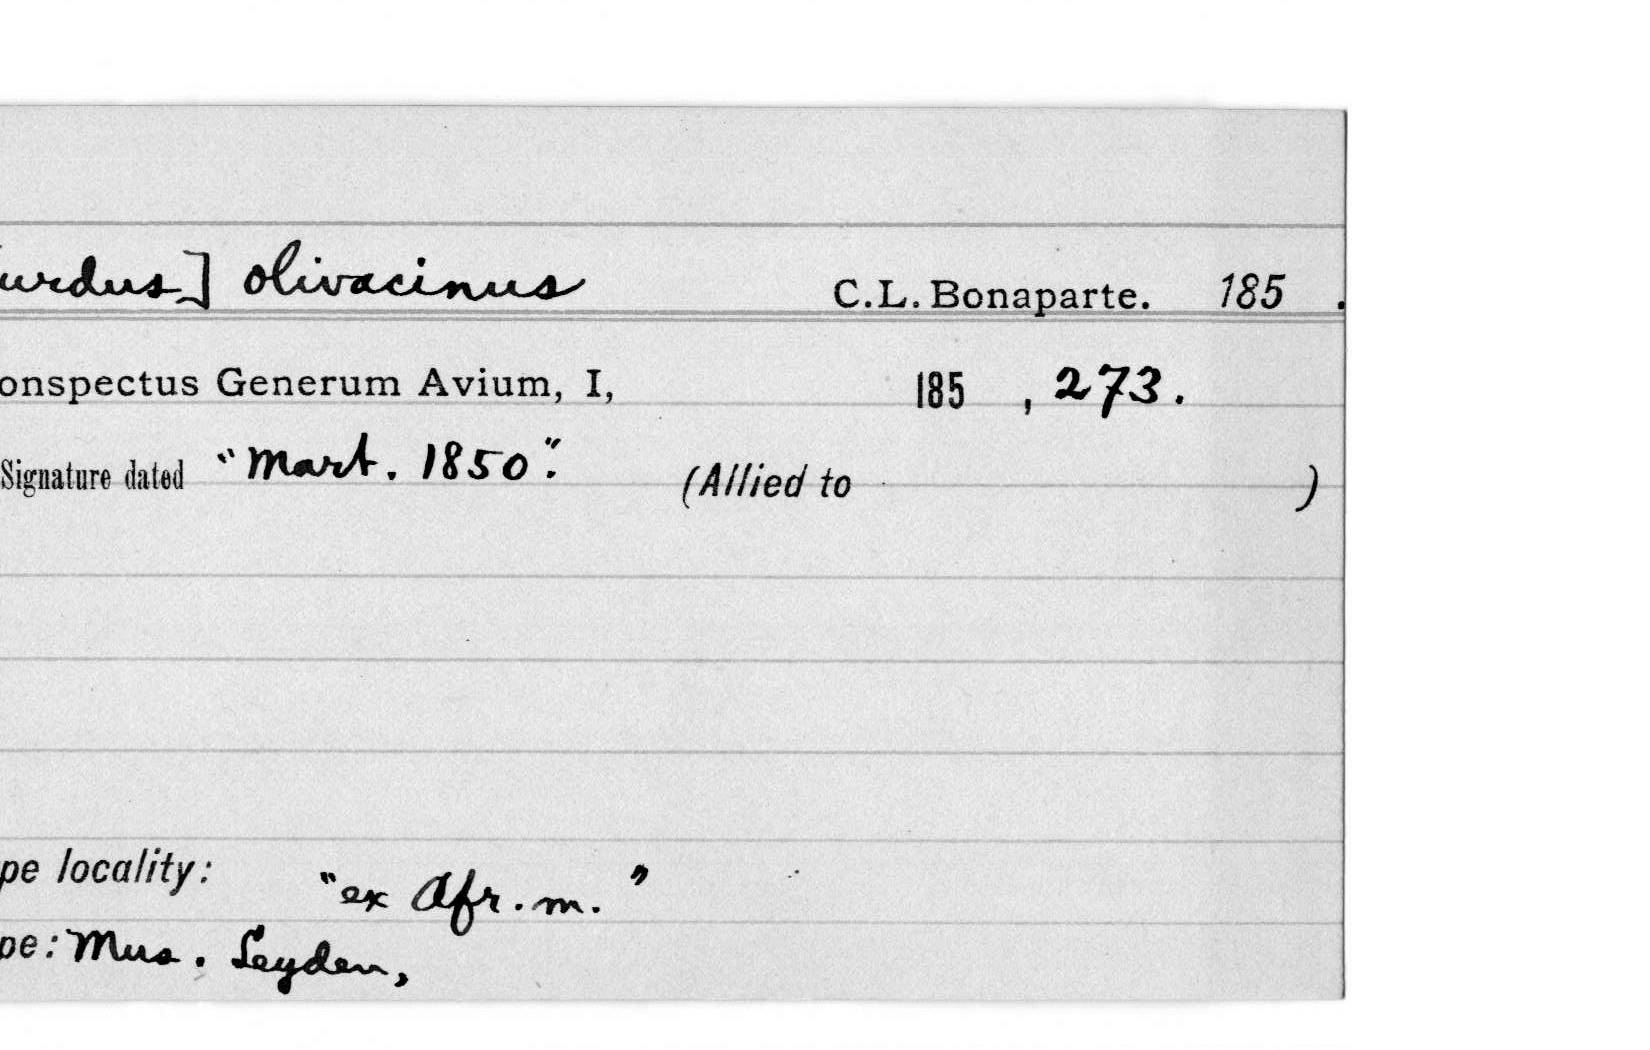 urdus] olivacinus C.L. Bonaparte. 185 .
onspectus Generum Avium, I, 185 , 273.
Signature dated "Mart. 1850". (Allied to )
pe locality: "ex Afr. m."
pe: Mus. Leyden,